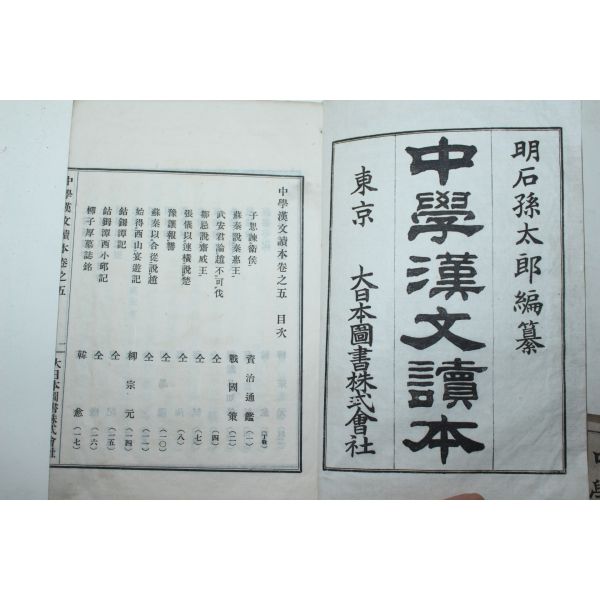 明石孫太郎編纂
中學漢文讀本
東京 大日本圖書株式會社
中學漢文讀本卷之五 目次
子思諫衞侯 資治通鑑 (一)
蘇秦說秦惠王 戰國策 (一)
武安君論趙不可伐 仝 (四)
鄒忌說齋威王 仝 (七)
張儀以連橫說楚 仝 (八)
豫讓報讐 仝 (一〇)
蘇秦以合從說趙 仝 (一一)
始得西山宴遊記 柳宗元 (一四)
鈷鉧潭記 仝 (一五)
鈷鉧潭西小邱記 仝 (一六)
柳子厚墓誌銘 韓愈 (一七)
中學漢文讀本卷之五 一 大日本圖書株式會社